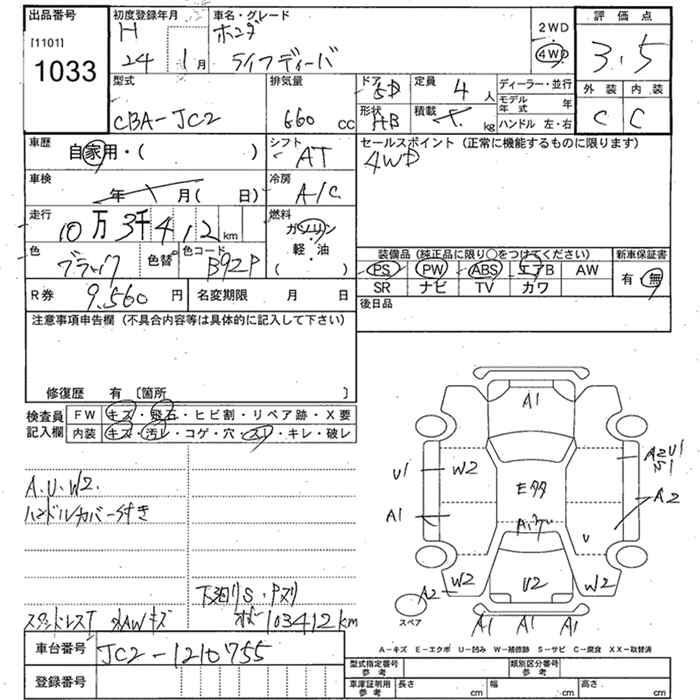 出品番号
[1101]
1033
初度登録年月
H
24 1月
車名・グレード
ホンダ
ライフディーバ
2WD
4WD
評価点
3.5
外装 内装
C C
型式
CBA-JC2
排気量
660 cc
ドア
5D
形状
HB
定員 4人
積載 kg
ディーラー・並行
モデル年式 年
ハンドル 左・右
車歴
自家用・( )
シフト
AT
セールスポイント (正常に機能するものに限ります)
4WD
車検
年 月( 日)
冷房
A/C
走行
10万3千412km
燃料
ガソリン
軽・油
( )
色
ブラック
色替
色コード
B92P
装備品 (純正品に限り○をつけてください)
PS PW ABS エアB AW
SR ナビ TV カワ
新車保証書
有・無
R券
9,560円
名変期限 月 日
後日品
注意事項申告欄 (不具合内容等は具体的に記入して下さい)
修復歴 有 〔箇所 〕
検査員
記入欄
FW キズ・飛石・ヒビ割・リペア跡・X要
内装 キズ・汚レ・コゲ・穴・スレ・キレ・破レ
A.U.W2.
ハンドルカバー付き
下廻りS・Pヌリ
スタッドレスT
AWキズ
103412km
A1
U1
W2
A1
A2 W2
U2
W2
U
A2
A2 U1
S1
A1 A1 A1
スペア
A-キズ E-エクボ U-凹み W-補修跡 S-サビ C-腐食 XX-取替済
車台番号
JC2-1210755
登録番号
型式指定番号
参考
類別区分番号
参考
車庫証明用
参考
長さ cm 幅 cm 高さ cm